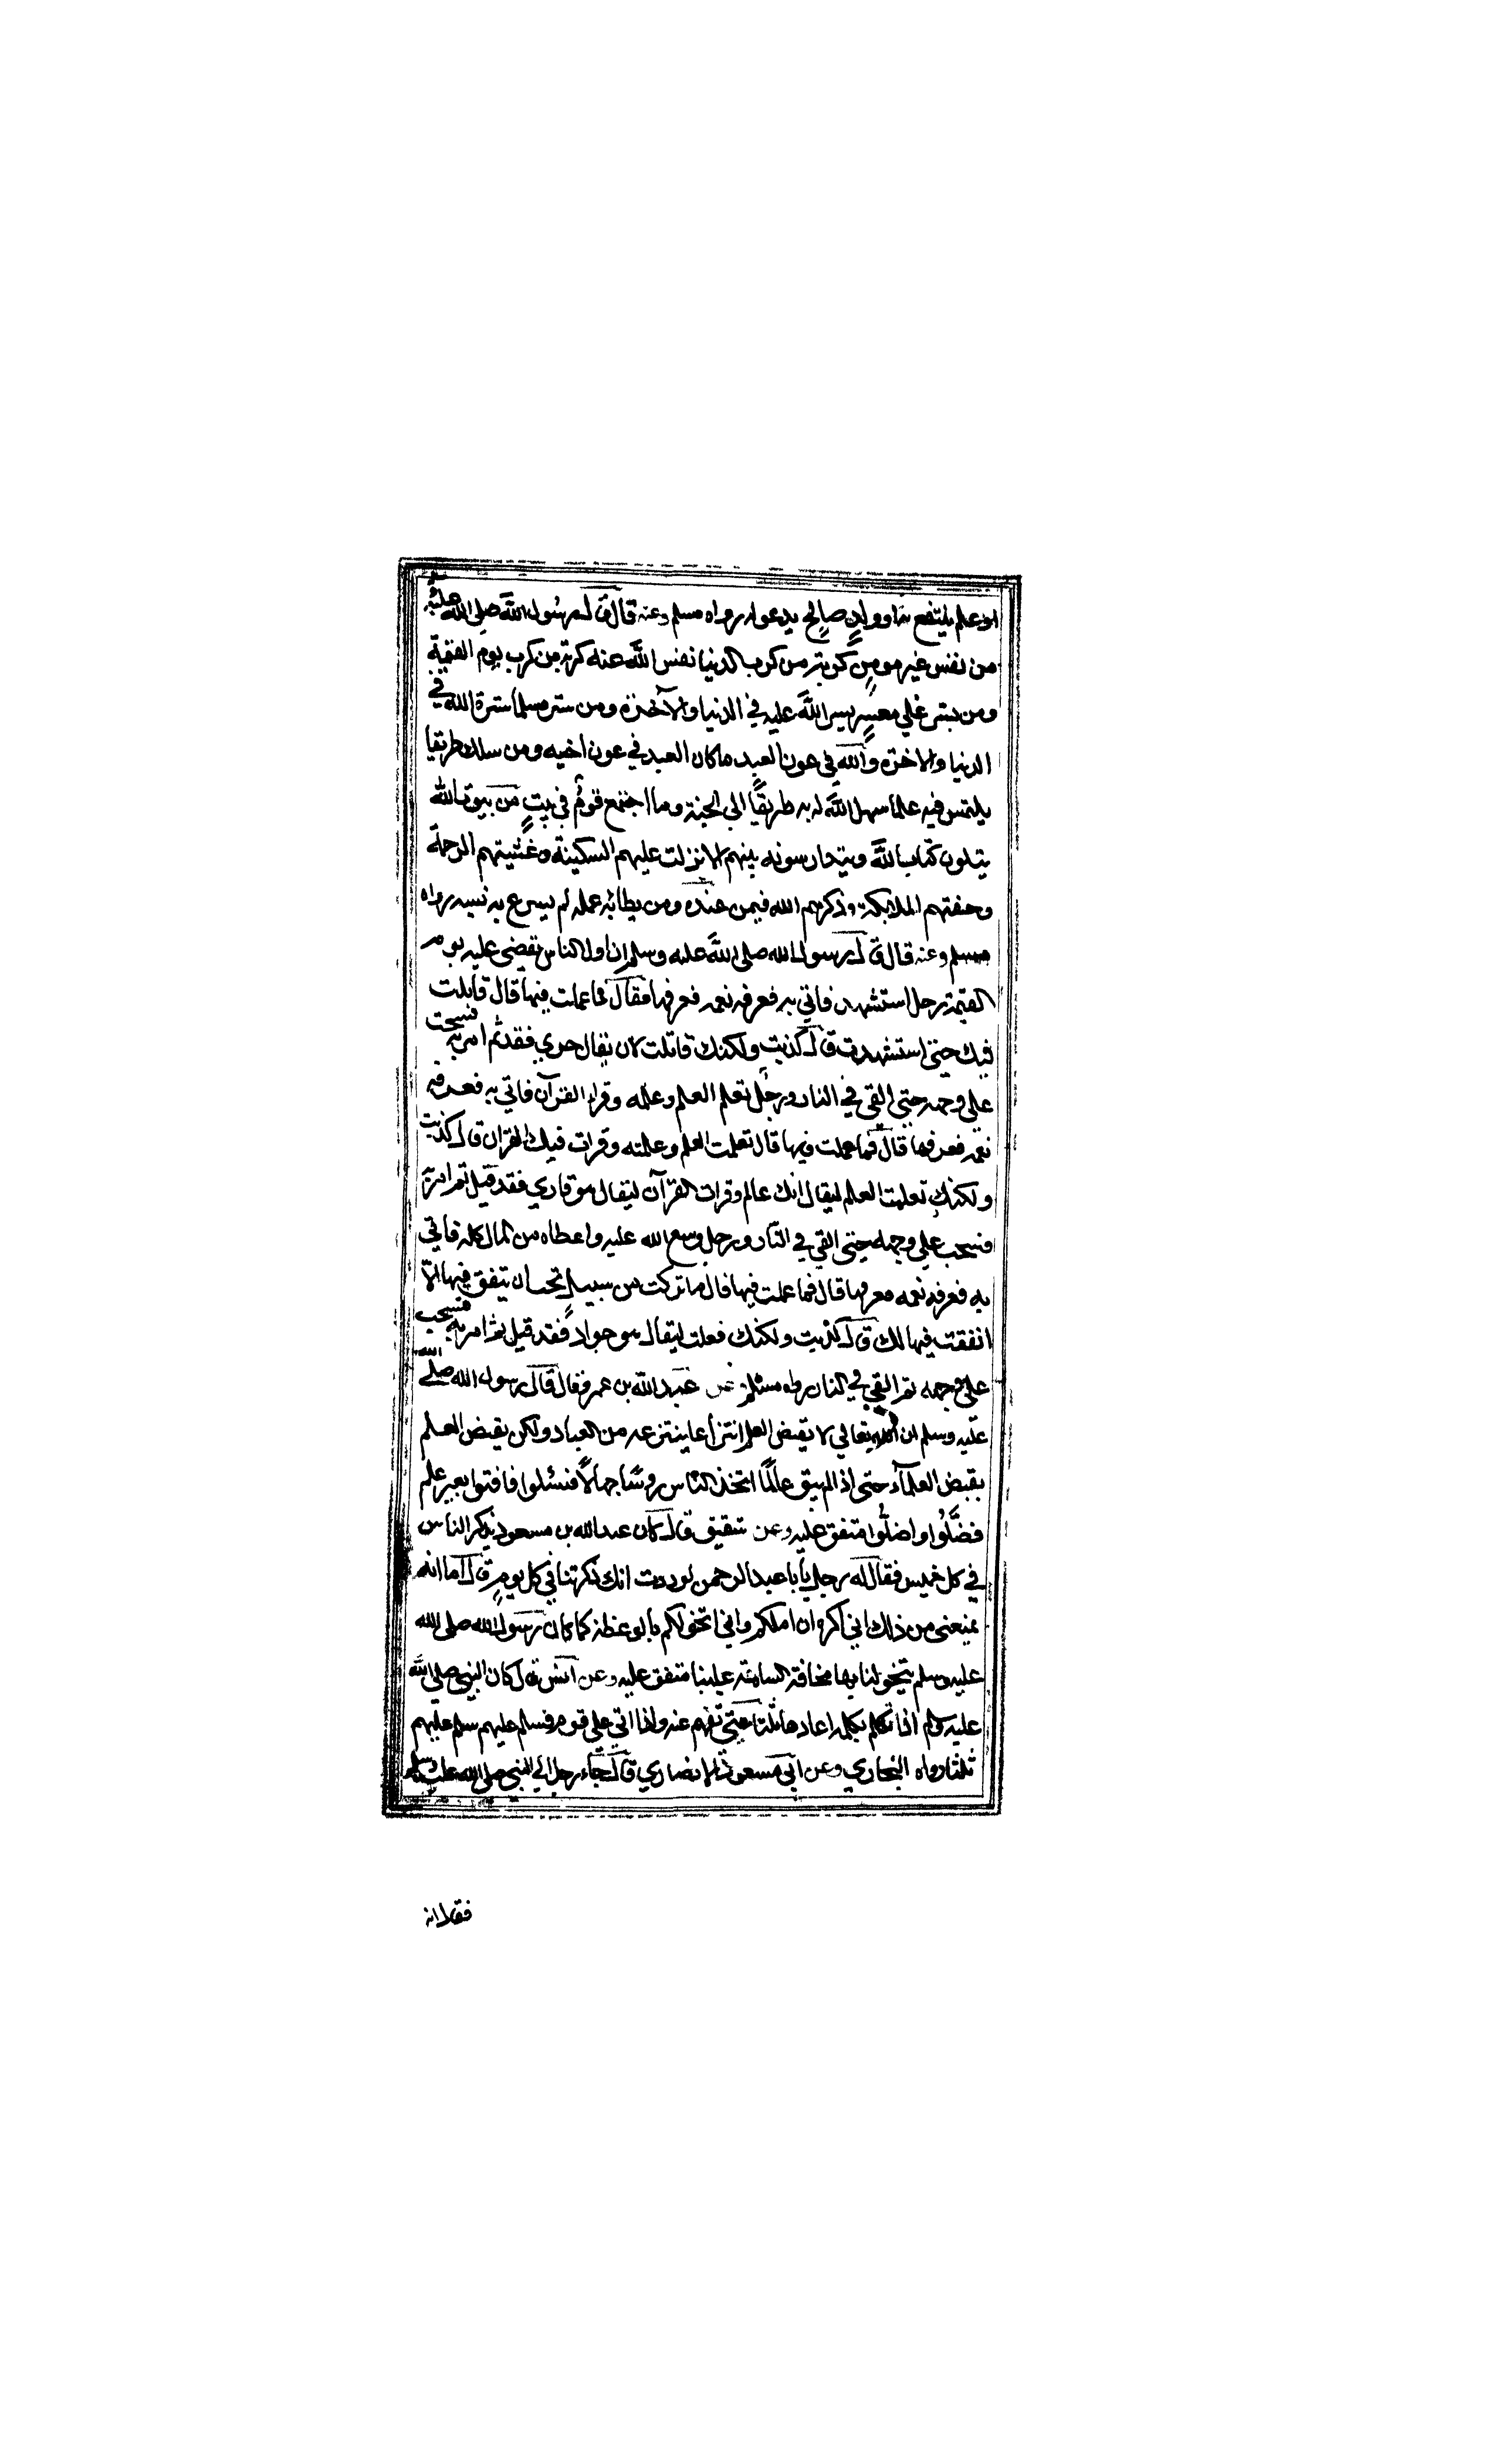 او علم ينتفع به او ولد صالح يدعو له رواه مسلم وعنه قال قال رسول الله صلى الله عليه
من نفس عن مومن كربة من كرب الدنيا نفس الله عنه كربة من كرب يوم القيمة
ومن يسر على معسر يسر الله عليه في الدنيا والآخرة ومن ستر مسلما ستره الله في
الدنيا والاخرة والله في عون العبد ما كان العبد في عون اخيه ومن سلك طريقا
يلتمس فيه علما سهل الله له به طريقًا الي الجنة وما اجتمع قوم في بيتٍ من بيوت الله
يتلون كتاب الله ويتدارسونه بينهم الا نزلت عليهم السكينة وغشيتهم الرحمة
وحفتهم الملائكة وذكرهم الله فيمن عنده ومن بطا به عمله لم يسرع به نسبه رواه
مسلم وعنه قال قال رسول الله صلى الله عليه وسلم ان اول الناس يقضى عليه يوم
القيمة رجل استشهد فاتي به فعرفه نعمه فعرفها فقال فما عملت فيها قال قاتلت
فيك حتى استشهدت قال كذبت ولكنك قاتلت لان يقال جري فقد ثم امر به فسحب
على وجهه حتى القي في النار ورجُل تعلم العلم وعلمه وقرا القرآن فاتي به فعرفه
نعمه فعرفها قال فما عملت فيها قال تعلمت العلم وعلمته وقرات فيك القران قال كذبت
ولكنك تعلمت العلم ليقال انك عالم وقرات القرآن ليقال هو قاري فقد قيل ثم امر به
فسحب على وجهه حتى القي في النار ورجل وسع الله عليه واعطاه من المال كله فاتي
به فعرفه نعمه فعرفها قال فما عملت فيها قال ما تركت من سبيل تحب ان ينفق فيها الا
انفقت فيها لك قال كذبت ولكنك فعلت ليقال هو جواد فقد قيل ثم امر به فسحب
على وجهه ثم القي في النار رواه مسلم عن عبد الله بن عمر وقال قال رسول الله صلى الله
عليه وسلم ان الله تعالي لا يقبض العلم انتزاعا ينتزعه من العباد ولكن يقبض العلم
بقبض العلمآء حتى اذا لم يبق عالمًا اتخذ الناس روسًا جهالًا فسئلوا فافتوا بغير علم
فضَلُّوا واضلُّوا متفق عليه وعن شقيق قال كان عبد الله بن مسعود يذكر الناس
في كل خميس فقال له رجل يا با عبد الرحمن لوددت انك ذكرتنا في كل يومٍ قال اما انه
يمنعنى من ذلك اني اكره ان املكم واني اتخولكم بالموعظة كما كان رسول الله صلى الله
عليه وسلم يتخولنا بها مخافة السامة علينا متفق عليه وعن انس قال كان النبي صلى الله
عليه وسلم اذا تكلم بكلمة اعادها ثلثا حتى تفهم عنه واذا اتي على قوم فسلم عليهم سلم عليهم
ثلثا رواه البخاري وعن ابي مسعود الانصاري قال جاء رجل الي النبي صلى الله عليه وسلم
فقال انه